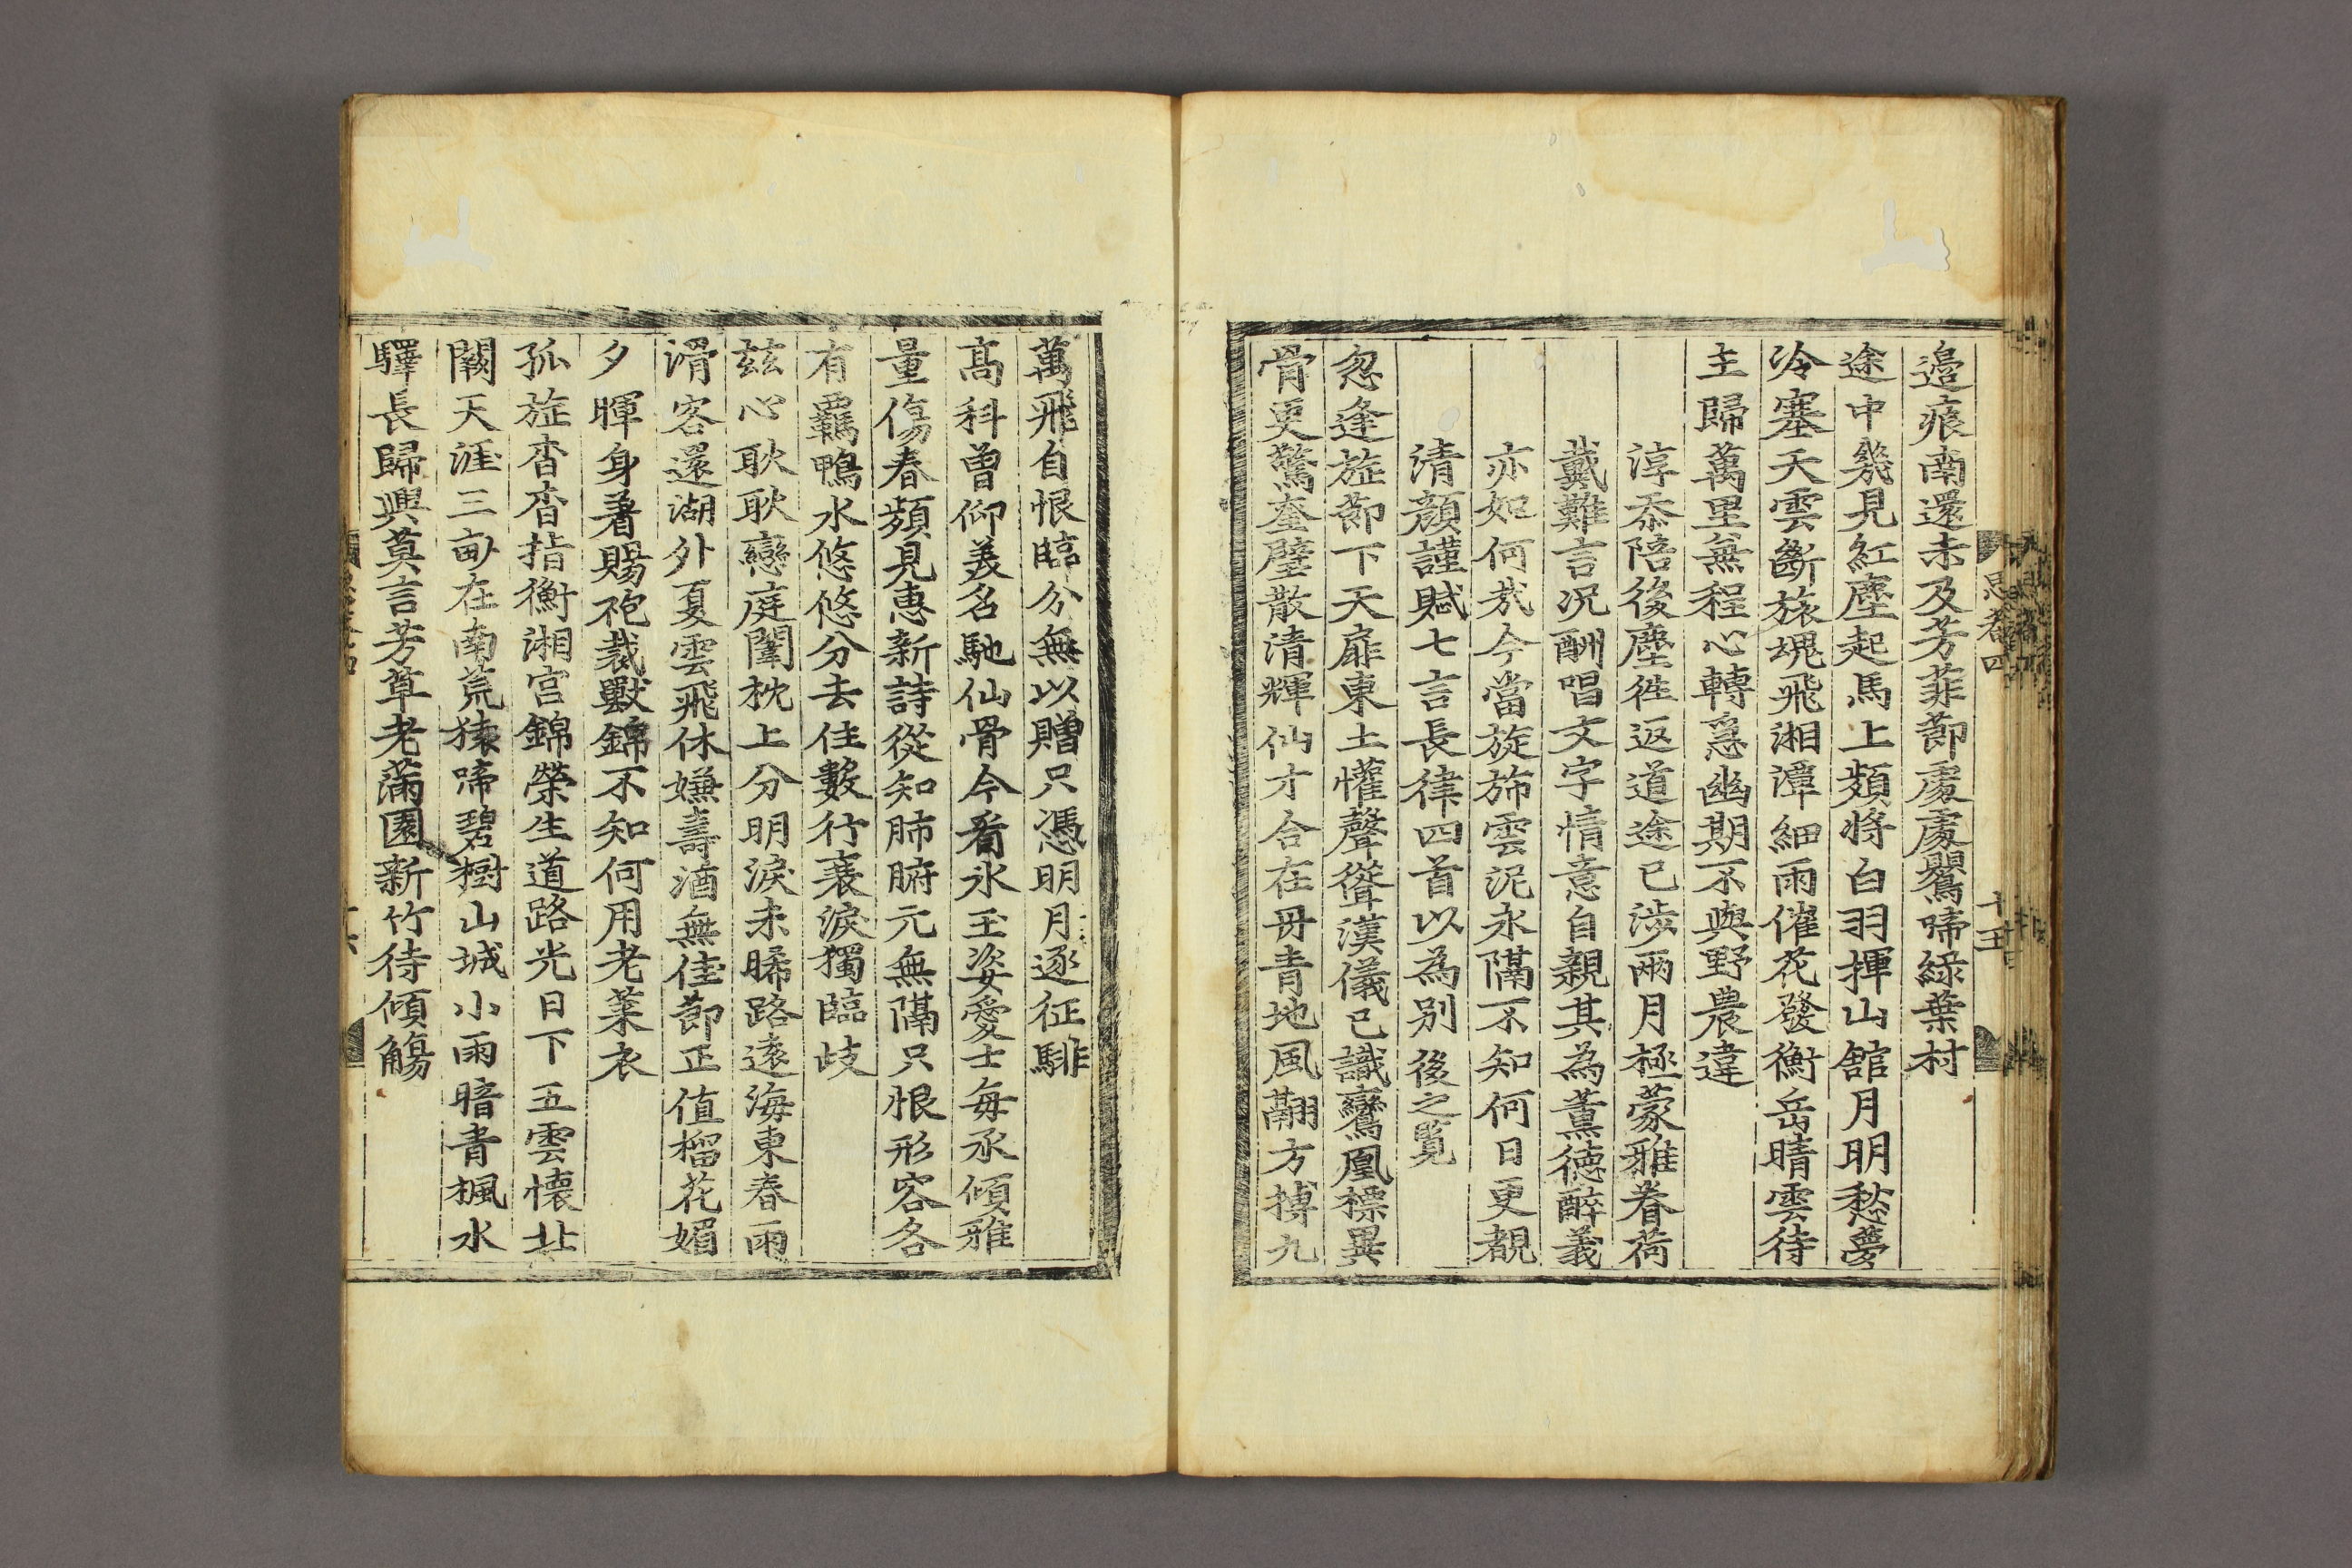 邉痕南還未及芳菲莭處處鸎啼綠葉村
途中幾見紅塵起馬上頻將白羽揮山舘月明愁夢
冷塞天雲斷旅塊飛湘潭細雨催花發衡岳晴雲待
主歸萬里無程心轉急幽期不與野農違
淳忝陪後塵徃返道途已涉兩月極蒙雅眷荷
戴難言况酬唱文字情意自親其為薫德醉義
亦如何㢤今當旋斾雲泥永隔不知何日更覩
清顔謹賦七言長律四首以為别後之覧
忽逢旌莭下天扉東土懽聲聳漢儀已識鸞凰標異
骨更驚奎璧散清輝仙才合在毋青地風翮方摶九
思卷四
十五
萬飛自恨臨分無以贈只憑明月逐征騑
髙科曾仰羙名馳仙骨今看氷玉姿愛士每承傾雅
量傷春頻見惠新詩從知肺腑元無隔只恨形容各
有羈鴨水悠悠分去住數行衰淚獨臨歧
玆心耿耿戀庭闈枕上分明淚未睎路遠海東春雨
滑客還湖外夏雲飛休嫌壽酒無佳莭正值榴花媚
夕暉身着賜袍裁獸錦不知何用老萊衣
孤旌杳杳指衡湘宫錦榮生道路光日下五雲懷北
闕天涯三畒在南荒猿啼碧樹山城小雨暗青楓水
驛長歸興莫言芳草老滿園新竹待傾觴